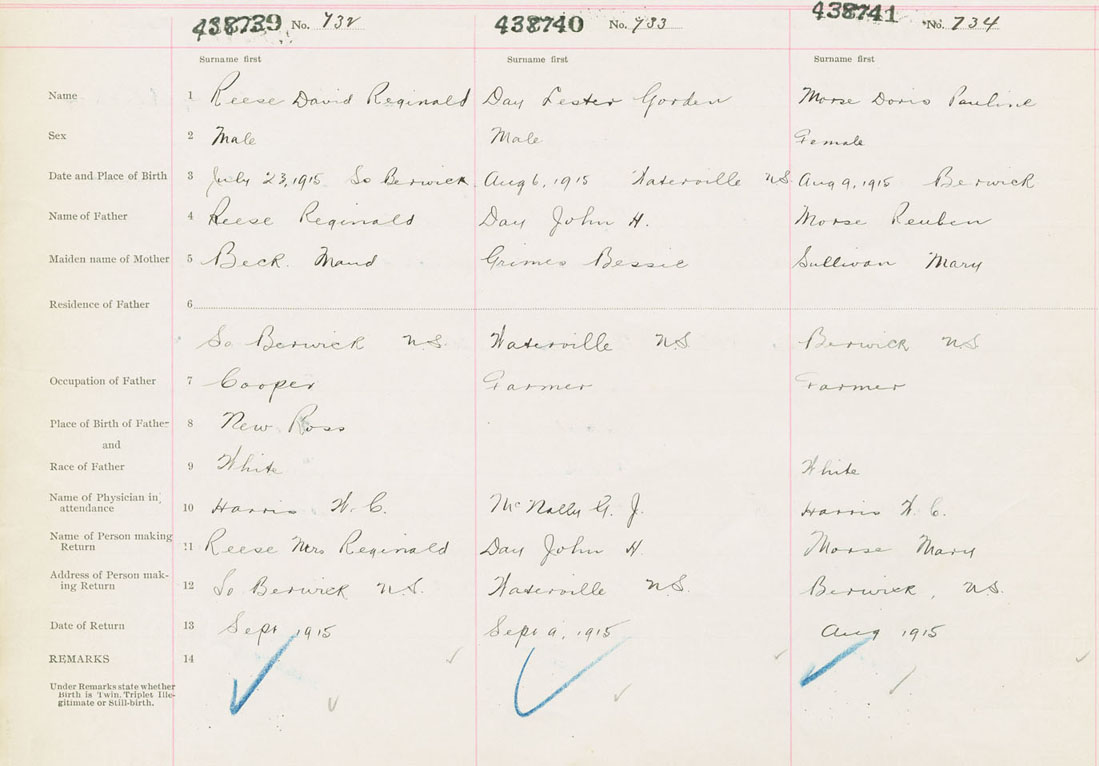 438739 No. 732 438740 No. 733 438741 No. 734
Surname first Surname first Surname first
Name 1 Reese David Reginald Day Lester Gorden Morse Doris Pauline
Sex 2 Male Male Female
Date and Place of Birth 3 July 23, 1915 So Berwick Aug 6, 1915 Waterville NS Aug 9, 1915 Berwick
Name of Father 4 Reese Reginald Day John H. Morse Reuben
Maiden name of Mother 5 Beck. Maud Grimes Bessie Sullivan Mary
Residence of Father 6
So Berwick NS. Waterville NS Berwick NS
Occupation of Father 7 Cooper Farmer Farmer
Place of Birth of Father 8 New Ross
and
Race of Father 9 White White
Name of Physician in
attendance 10 Harris W. C. McNally G. J. Harris W. C.
Name of Person making
Return 11 Reese Mrs Reginald Day John H Morse Mary
Address of Person mak-
ing Return 12 So Berwick NS. Waterville NS. Berwick, NS.
Date of Return 13 Sept 1915 Sept 9, 1915 Aug 1915
REMARKS 14
Under Remarks state whether
Birth is Twin, Triplet Ille-
gitimate or Still-birth.